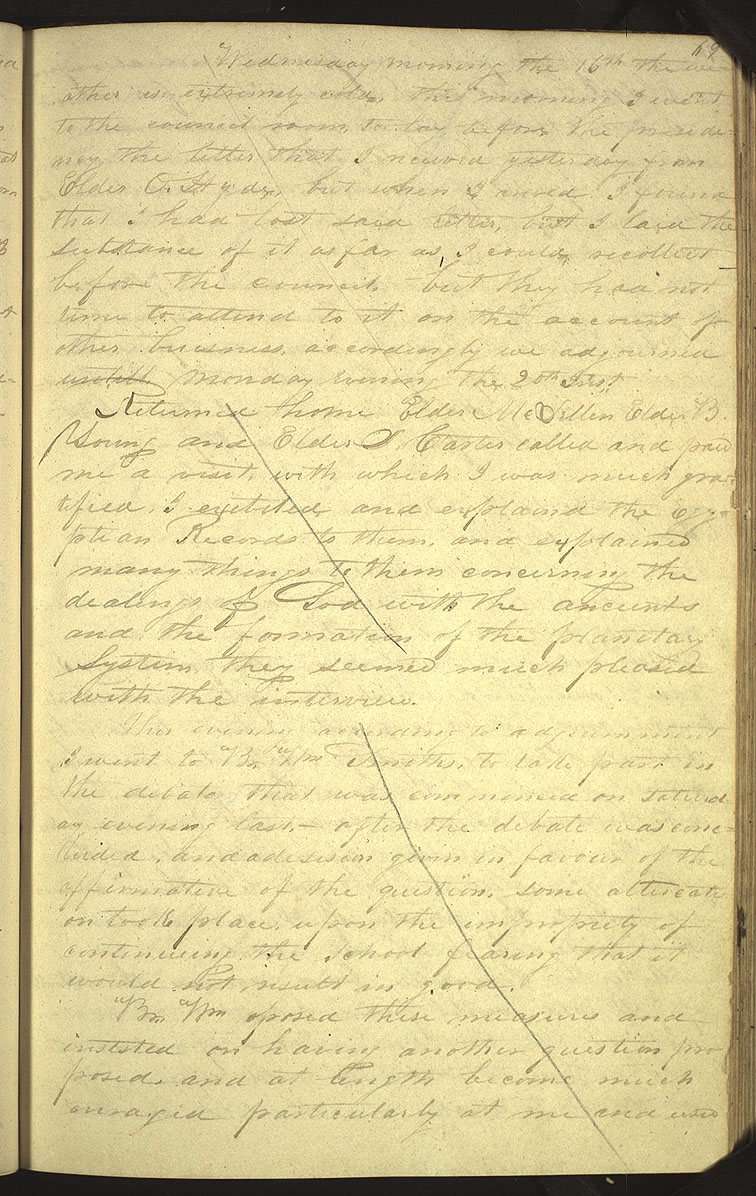 69
Wednesday morning the 16th the we
ather is extremely cold, this morning I went
to the council room, to lay before the preside-
ncy, the letter that I received yesterday from
Elder O. Hyde, but when I arived, I found
that I had lost said letter, but I laid the
substance of it as far as I could recollect
before the council, but they had not
time to attend to it on the account of
other buisness, accordingly we adjourned
untill monday Evening the 20th Inst
Returned home Elder McLellen Elder B.
Young and Elder J. Carter called and paid
me a visit, with which I was much gra-
tified, I exibited and explaind the Egy-
ptian Records to them, and explained
many things to them concerning the
dealings of God with the ancients
and the formation of the planetary
System, they seemed much pleased
with the interview.
This evening according to adjournment
I went to Br. Wm Smiths, to take part in
the debate that was commenced on saturd-
ay evening last,— after the debate was conc-
luded, and a desision given in favour of the
affirmative of the question, some altercati-
on took place, upon the impropriety of
continueing the school fearing that it
would not result in good.
Br. Wm oposed these measures and
insisted on having another question pro
posed, and at length become much
enraged particularly at me and used